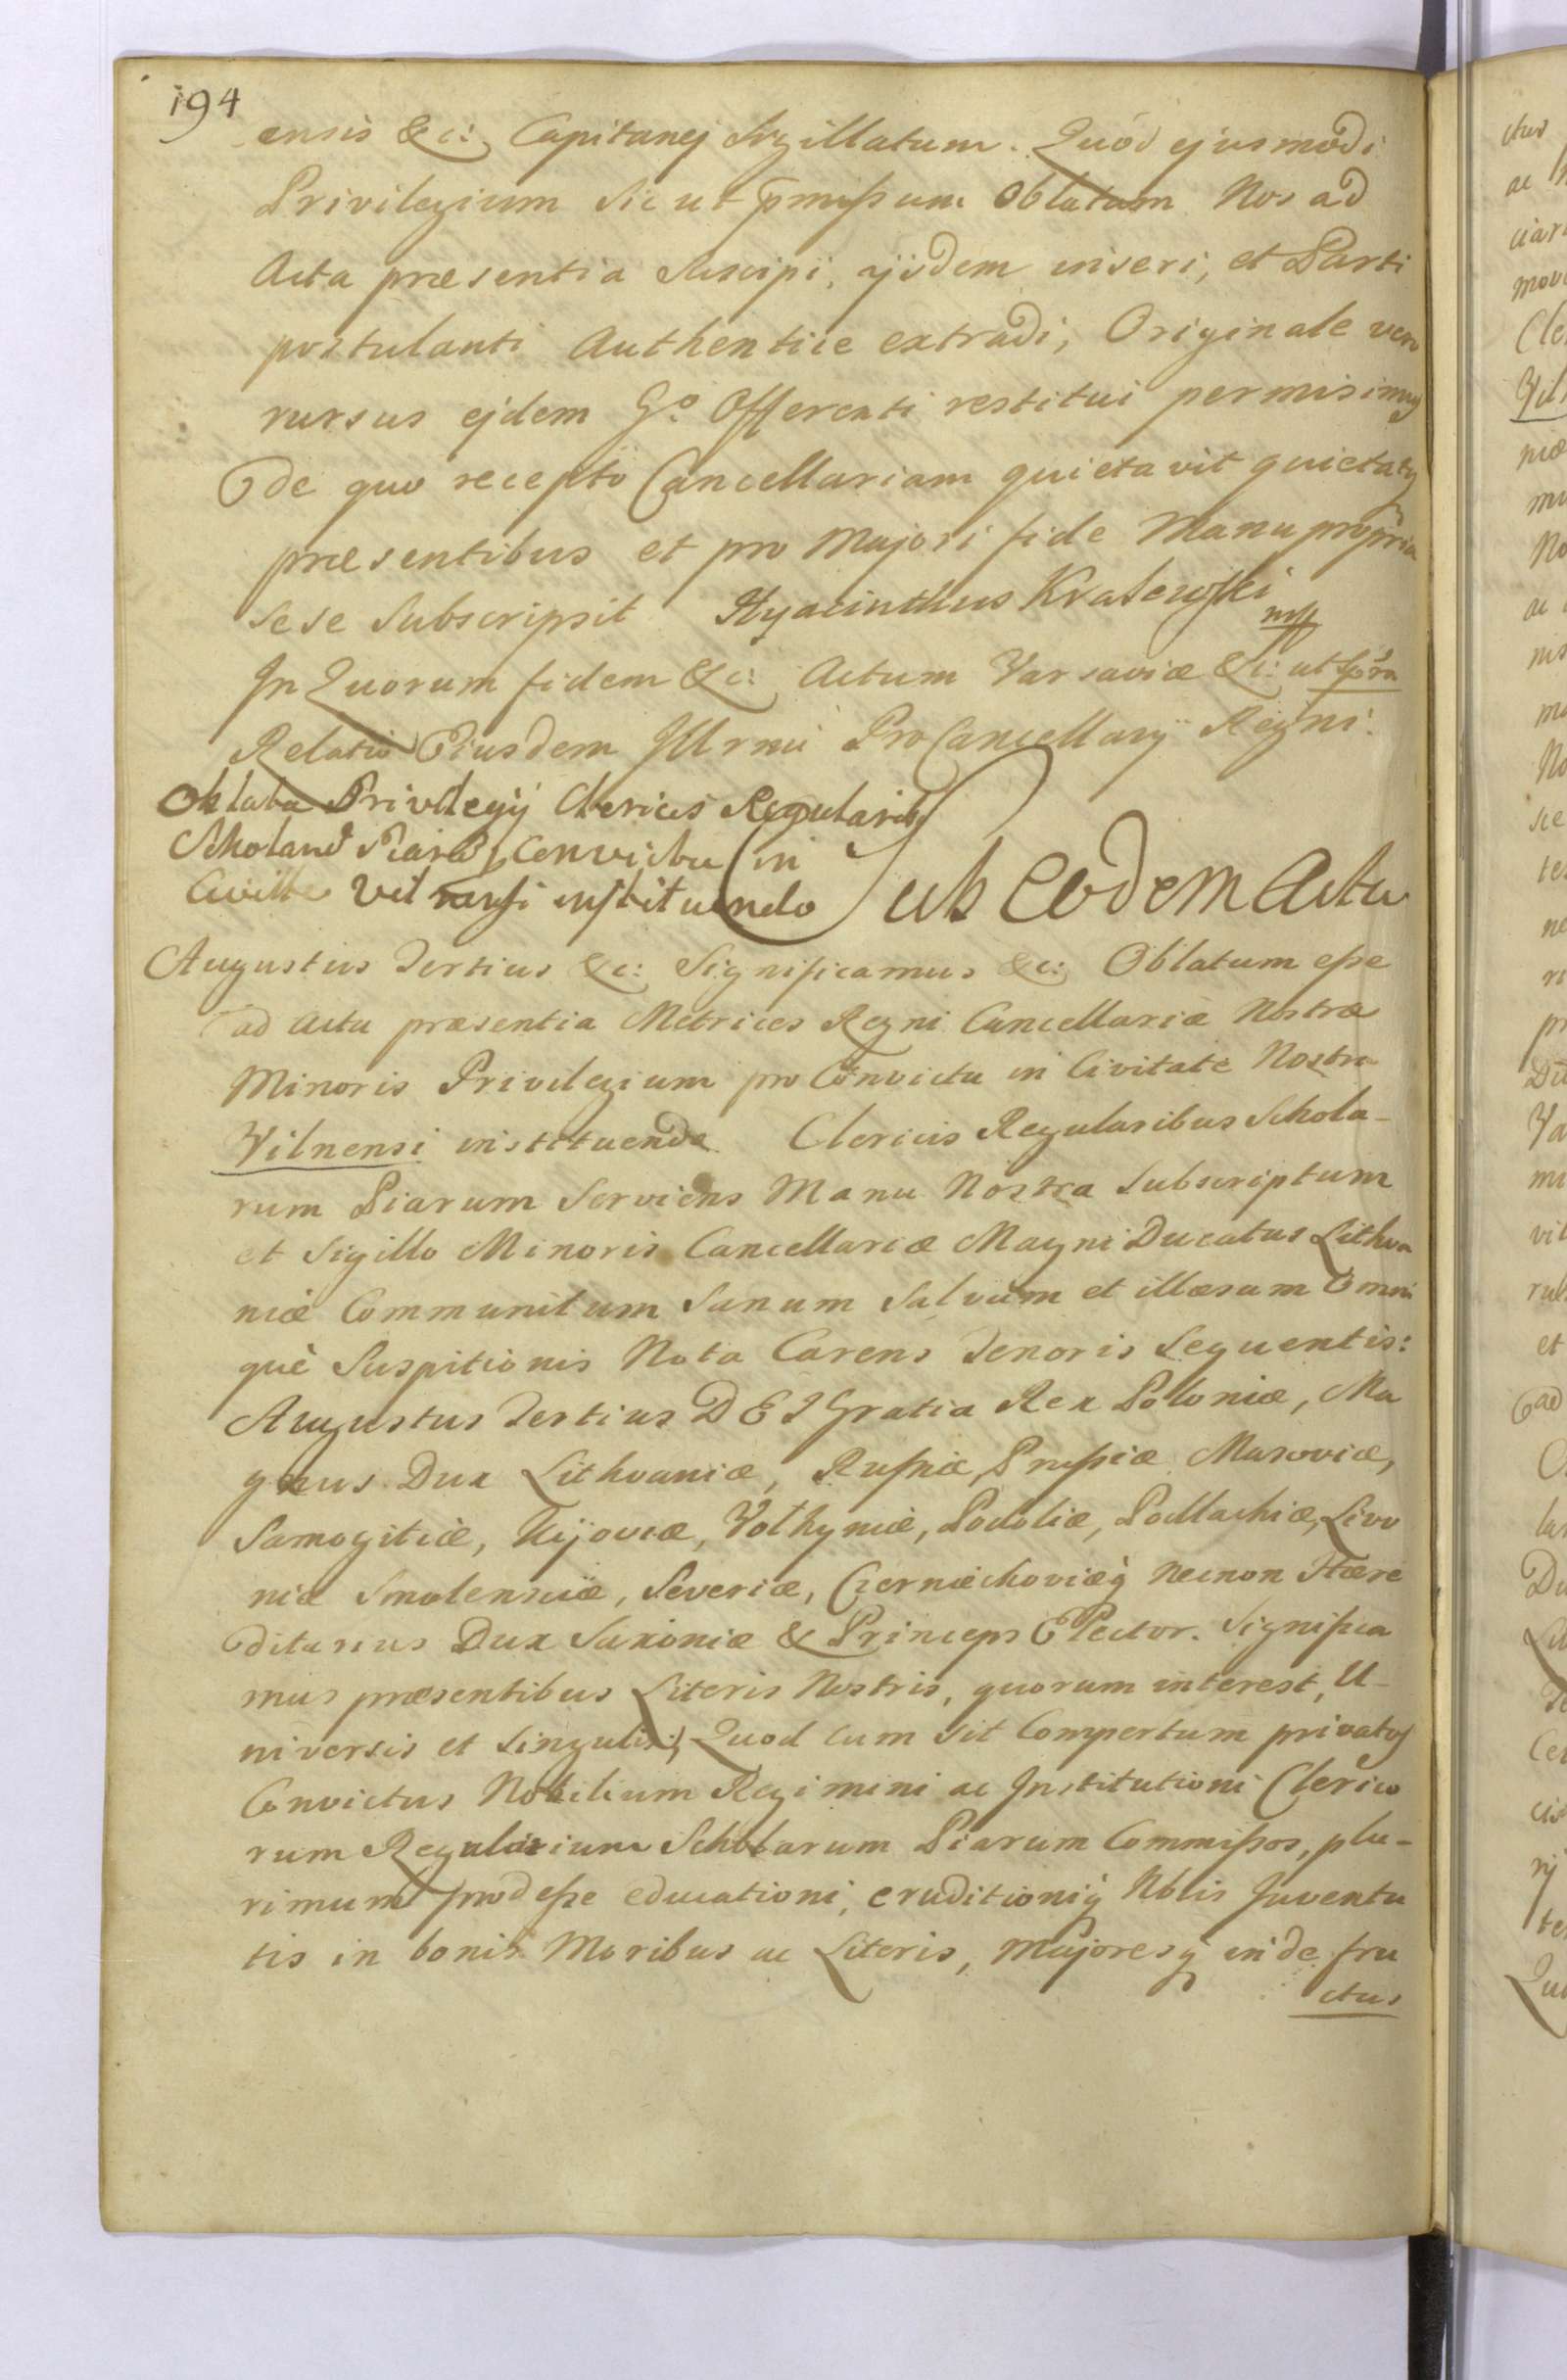 194
ensis &c: Capitanej Sigillatum. Quod ejusmodi
Privilegium Sic ut pmißum Oblatum Nos ad
Acta præsentia Suscipi, ijsdem inseri, et Parti
postulanti Authentice extradi, Originale vero
rursus ejdem Gº Offerenti restitui permisimus
De quo recepto Cancellariam quietavit quietatq
præsentibus et pro Majori fide Manu propria
sese Subscripsit Hyacinthus Kralewski
mp
In Quorum fidem &c: Actum Varsaviæ &c: ut supra
Relatio Ejusdem Illrmi ProCancellarij Regni.
Oblata Privilegij Clericis Regularibq
Scholarũ Piarũ, Convictu in
Civitte Vilnensi instituendo
Sub Eodem Actu
Augustus Tertius &c: Significamus &c: Oblatum eße
ad Acta præsentia Metrices Regni Cancellariæ Nostræ
Minoris Privilegium pro Convictu in Civitate Nostra
Vilnensi instituendo Clericis Regularibus Schola-
rum Piarum Serviens Manu Nostra Subscriptum
et Sigillo Minoris Cancellariæ Magni Ducatus Lithva
niæ Communitum Sanum Salvum et illæsum Omni
què Suspitionis Nota Carens Tenoris Sequentis:
Augustus Tertius DEI Gratia Rex Poloniæ, Ma
gnus Dux Lithvaniæ, Rußiæ, Prußiæ Masoviæ,
Samogitiæ, Kijoviæ, Volhyniæ, Podoliæ, Podlachiæ, Livo
niæ Smolensciæ, Severiæ, Czerniechoviæq̀ Necnon Hære
ditarius Dux Saxoniæ & Princeps Elector. Significa
mus præsentibus Literis Nostris, quorum interest, U-
niversis et Singulis; Quod cum sit Compertum privatos
Convictus Nobilium Regimini ac Institutioni Clerico
rum Regularium Scholarum Piarum Commißos, plu-
rimum prodeße educationi, eruditioniq̀ Nblis Juventu
tis in bonis Moribus ac Literis, Majoresq̀ inde fru
ctus